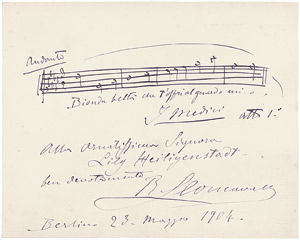 Andante
Bionda beltà che t'offri al guardo mio
I Medici atto 1º
Alla ornatissima Signora
Lily Heiligenstadt
ben devotamente
R. Leoncavallo
Berlino 23. Maggio 1904.